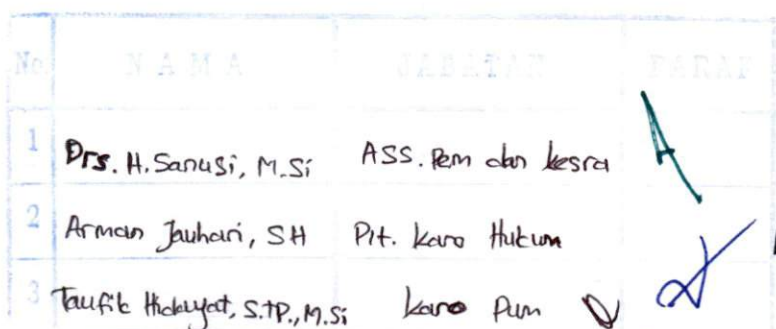 No NAMA JABATAN PARAF
1 Drs. H. Sanusi, M.Si ASS. Pem dan kesra
2 Arman Jauhari, SH Plt. Karo Hukum
3 Taufik Hidayat, S.TP., M.Si Karo Pum